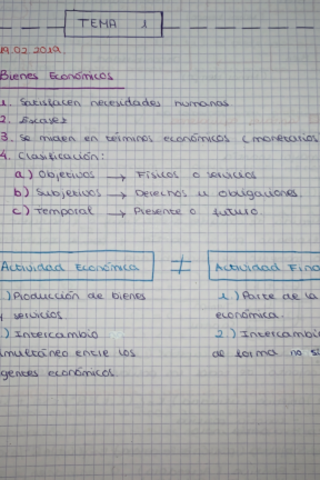 TEMA 1
19.02.2019
Bienes Económicos
1. Satisfacen necesidades humanas
2. Escasez
3. Se miden en términos económicos (monetarios
4. Clasificación:
a) Objetivos → Físicos o servicios
b) Subjetivos → Derechos u obligaciones.
c) Temporal → Presente o futuro.
Actividad Económica ≠ Actividad Fina
) Producción de bienes
y servicios
) Intercambio
imultáneo entre los
gentes económicos.
1.) Parte de la
económica.
2) Intercambio
de forma no si